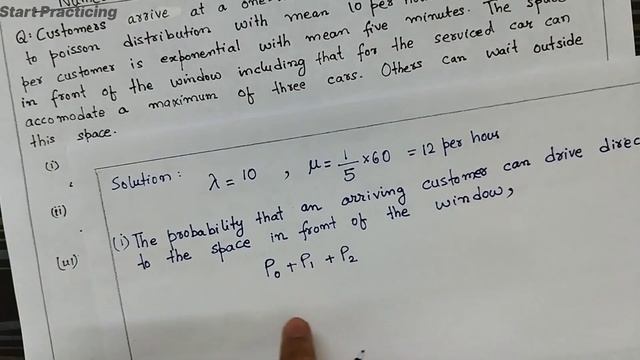 Start Practicing
Q: Customers arrive at a one
to poisson distribution with mean 10 per
per customer is exponential with mean five minutes. The space
in front of the window including that for the serviced car can
accomodate a maximum of three cars. Others can wait outside
this space.
(i)
Solution: λ = 10 , μ = 1/5 × 60 = 12 per hour
(ii)
(i) The probability that an arriving customer can drive direc
to the space in front of the window,
(iii)
P₀ + P₁ + P₂